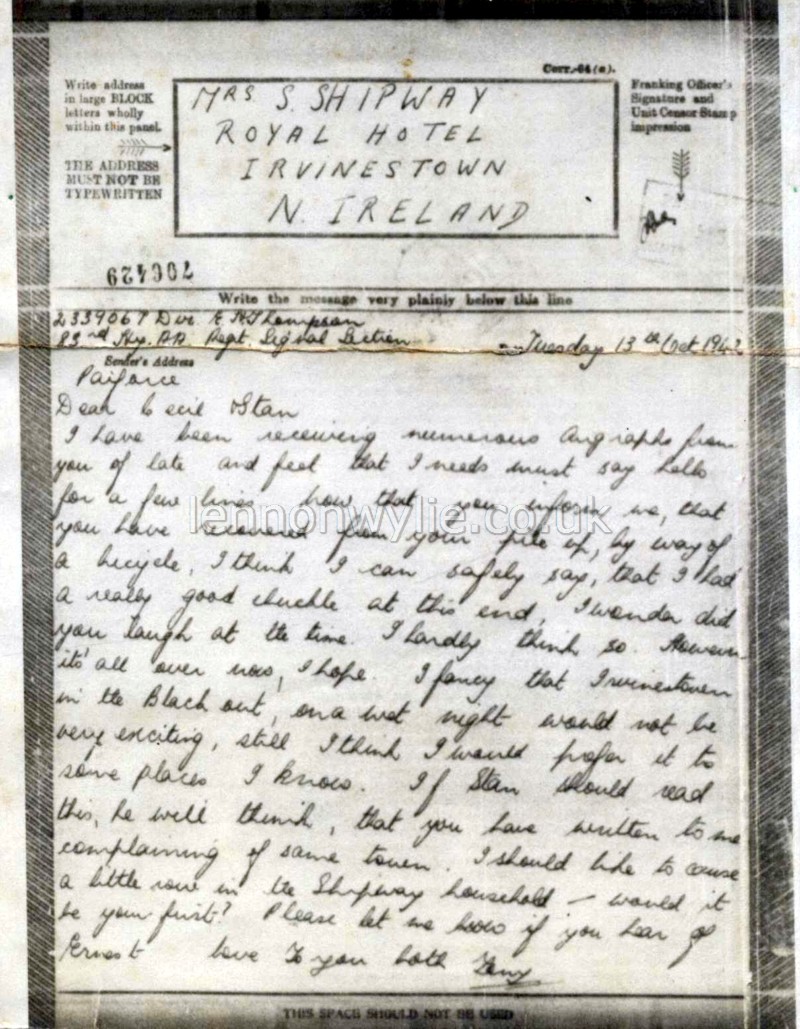 Corr.-64(a).
Write address
in large BLOCK
letters wholly
within this panel.
THE ADDRESS
MUST NOT BE
TYPEWRITTEN
MRS. S. SHIPWAY
ROYAL HOTEL
IRVINESTOWN
N. IRELAND
Franking Officer's
Signature and
Unit Censor Stamp
impression
706429
Write the message very plainly below this line
2339067 Dvr. E Thompson
83rd Hvy. AA Regt. Signal Section
Tuesday 13th Oct 194
Sender's Address
Paiforce
Dear Cecil & Stan
I have been receiving numerous Airgraphs from
you of late and feel that I needs must say hello
for a few lines now that you inform me, that
you have recovered from your pile up, by way of
a bicycle, I think I can safely say, that I had
a really good chuckle at this end, I wonder did
you laugh at the time. I hardly think so. However
it's all over now, I hope. I fancy that Irvinestown
in the Black out, on a wet night would not be
very exciting, still I think I would prefer it to
some places I know. If Stan should read
this, he will think, that you have written to me
complaining of same town. I should like to cause
a little row in the Shipway household – would it
be your first? Please let me know if you hear of
Ernest love to you both
THIS SPACE SHOULD NOT BE USED
lennonwylie.co.uk